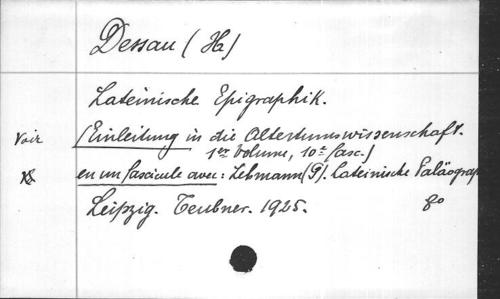 Dessau (Ha)
Lateinische Epigraphik.
Voir (Einleitung in die Altertumswissenschaft.
1er Volume, 10e fasc.)
en un fascicule avec: Lehmann (P). Lateinische Paläograp
Leipzig. Teubner. 1925. 8o